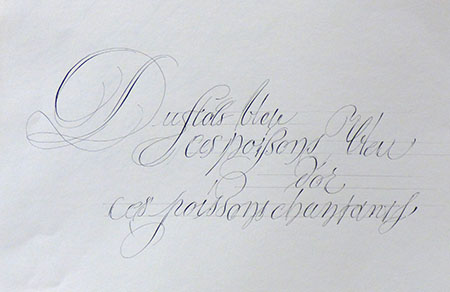 Du flots bleu
ces poissons bleu
d'or
ces poissons chantants